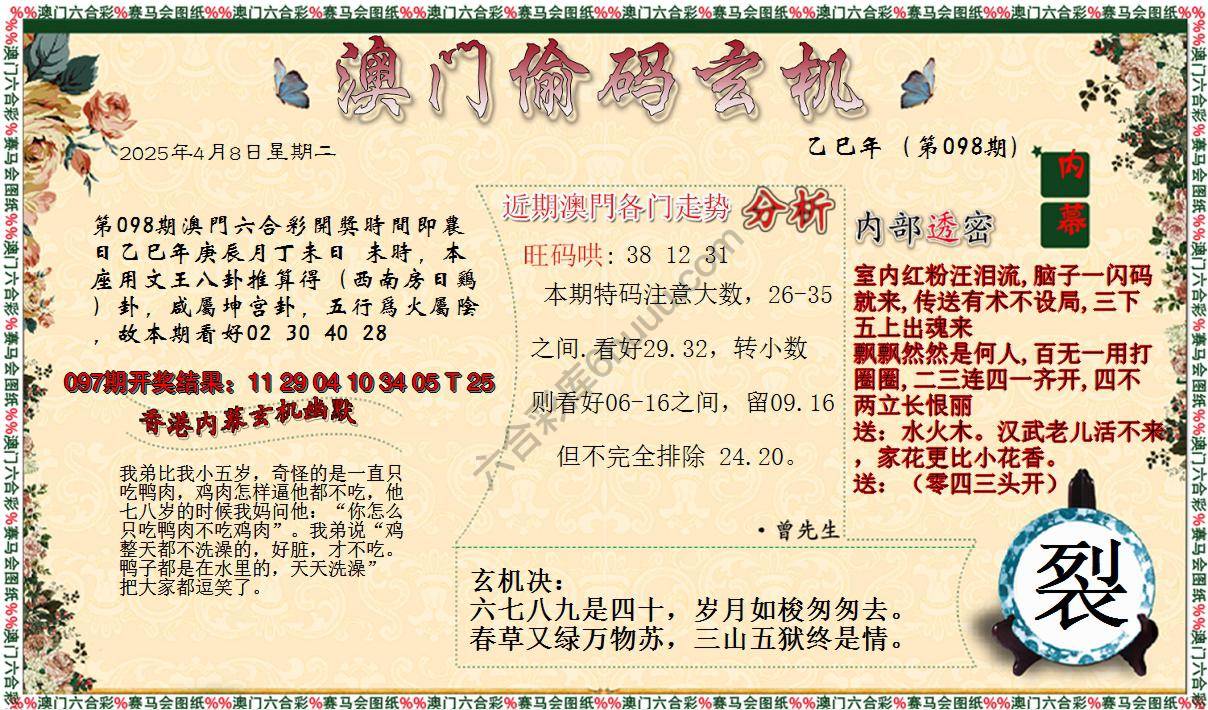 %%澳门六合彩%赛马会图纸%%澳门六合彩%赛马会图纸%%澳门六合彩%赛马会图纸%%澳门六合彩%赛马会图纸%%澳门六合彩%赛马会图纸%%澳门六合彩%赛马会图纸%%
澳门偷码玄机
2025年4月8日星期二
乙巳年（第098期）
内
幕
第098期澳門六合彩開獎時間即農
日乙巳年庚辰月丁未日 未時，本
座用文王八卦推算得（西南房日鷄
）卦，咸屬坤宫卦，五行爲火屬陰
，故本期看好02 30 40 28
097期开奖结果：11 29 04 10 34 05 T 25
香港内幕玄机幽默
我弟比我小五岁，奇怪的是一直只
吃鸭肉，鸡肉怎样逼他都不吃，他
七八岁的时候我妈问他：“你怎么
只吃鸭肉不吃鸡肉”。我弟说“鸡
整天都不洗澡的，好脏，才不吃。
鸭子都是在水里的，天天洗澡”
把大家都逗笑了。
近期澳門各门走势 分析
旺码哄: 38 12 31
本期特码注意大数，26-35
之间.看好29.32，转小数
则看好06-16之间，留09.16
但不完全排除 24.20。
·曾先生
内部透密
室内红粉汪泪流,脑子一闪码
就来,传送有术不设局,三下
五上出魂来
飘飘然然是何人,百无一用打
圈圈,二三连四一齐开,四不
两立长恨丽
送：水火木。汉武老儿活不来
，家花更比小花香。
送：（零四三头开）
玄机决：
六七八九是四十，岁月如梭匆匆去。
春草又绿万物苏，三山五狱终是情。
裂
六合彩库6huuu.com
%%澳门六合彩%赛马会图纸%%澳门六合彩%赛马会图纸%%澳门六合彩%赛马会图纸%%澳门六合彩%赛马会图纸%%澳门六合彩%赛马会图纸%%澳门六合彩%赛马会图纸%%